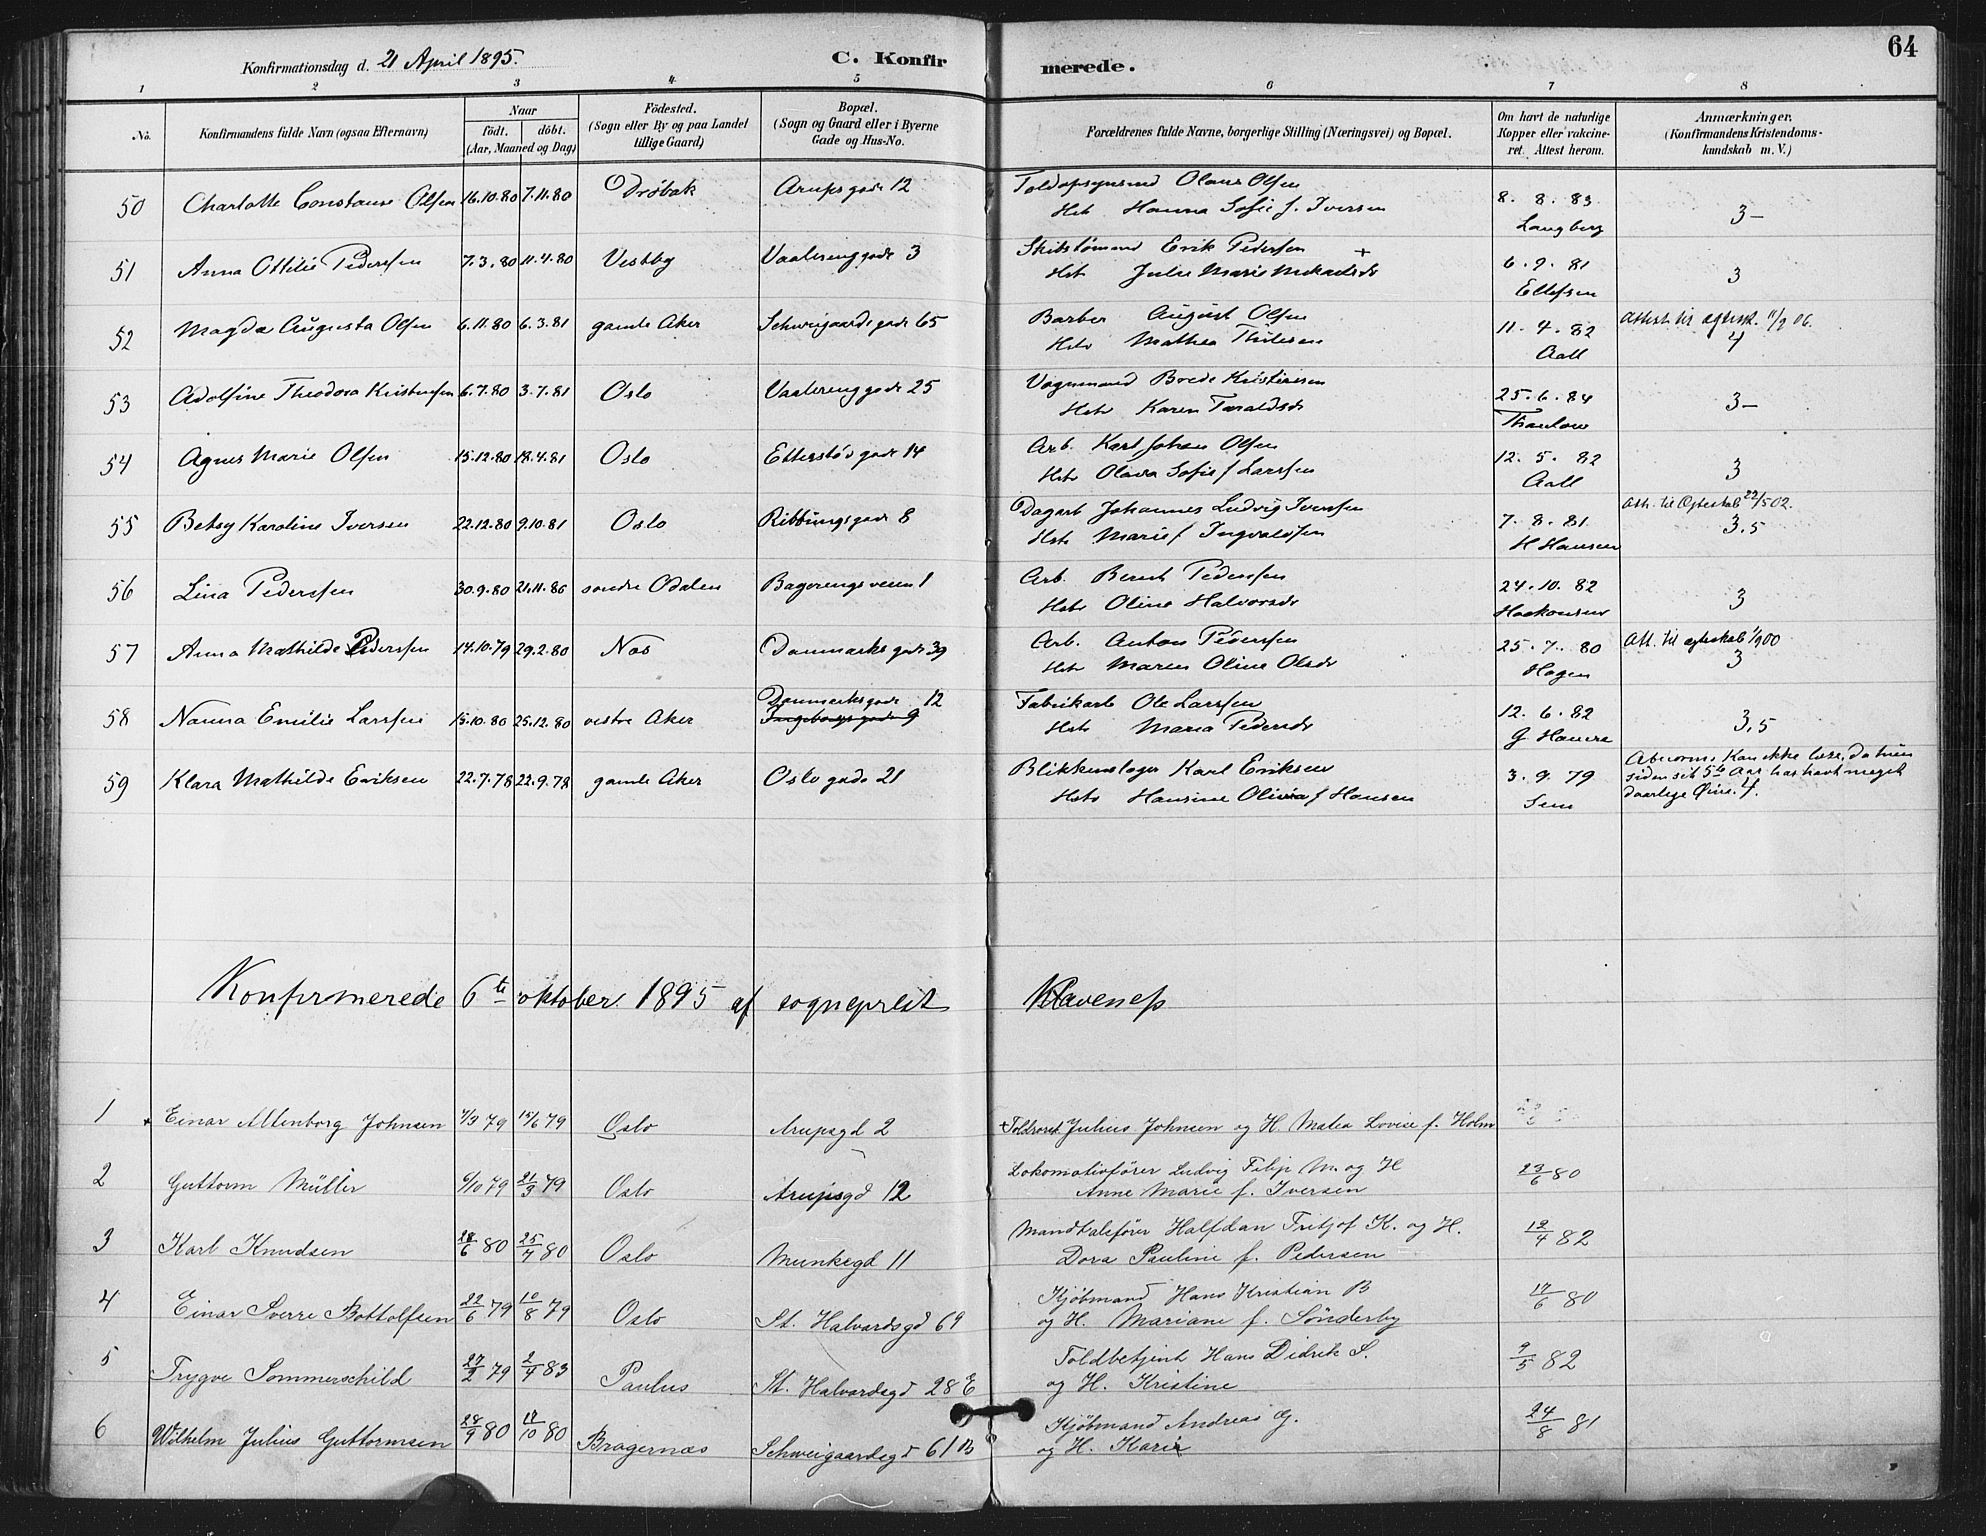 64
Konfirmationsdag d. 21 April 1895.
C. Konfirmerede.
1 2 3 4 5 6 7 8
No.
Konfirmandens fulde Navn (ogsaa Efternavn)
Naar
födt. döbt.
(Aar, Maaned og Dag)
Födested.
(Sogn eller By og paa Landet
tillige Gaard)
Bopæl.
(Sogn og Gaard eller i Byerne
Gade og Hus-No.
Forældrenes fulde Navne, borgerlige Stilling (Næringsvei) og Bopæl.
Om havt de naturlige
Kopper eller vakcine-
ret. Attest herom.
Anmærkninger.
(Konfirmandens Kristendoms-
kundskab m. V.)
50 Charlotte Constance Olsen 16.10.80 7.11.80 Drøbak Arupsgade 12 Toldopsynsmd Olaus Olsen
Hst Hanna Sofie f. Iversen 8. 8. 83 Langberg 3-
51 Anna Ottilie Pederssen 7.3.80 11.4.80 Vestby Vaalerenggade 3 Skibstømmd Erik Pedersen +
Hst Julie Marie Mikaelsdr 6. 9. 81 Ellefsen 3
52 Magda Augusta Olsen 6.11.80 6.3.81 gamle Aker Schweigaardsgade 65 Barber August Olsen
Hst Mathea Thilesen 11. 4. 82 Aall Attest til ægtesk. 11/9 06. 4
53 Adolfine Theodora Kristensen 6.7.80 3.7.81 Oslo Vaalerenggade 25 Vognmand Brede Kristensen
Hst Karen Taraldsdr 25. 6. 84 Thaulow 3-
54 Agnes Marie Olsen 15.12.80 18.4.81 Oslo Etterstadgade 14 Arb. Karl Johan Olsen
Hst Olava Sofie f Larssen 12. 5. 82 Aall 3
55 Betsy Karoline Iversen 22.12.80 9.10.81 Oslo Ribbungsgade 8 Dagarb Johannes Ludvig Iverssen
Hst Marie f Ingvaldsen 7. 8. 81 H Hansen Att. til Ægteskab 22/5 02. 3,5
56 Lina Pederssen 30.9.80 21.11.80 søndre Odalen Bagerengsveien 1 Arb. Bernt Pederssen
Hst Oline Halvorsdr 24. 10. 82 Haakonsen 3
57 Anna Mathilde Pederssen 14.10.79 29.2.80 Næs Danmarksgade 39 Arb. Anton Pederssen
Hst Maren Oline Olsdr 25. 7. 80 Hagen Att. til ægteskab 1/9 00 3
58 Nanna Emilie Larssen 15.10.80 25.12.80 vestre Aker Danmarksgade 12
Ingeborgsgade 9 Fabrikarb Ole Larssen
Hst Maria Pedersdr 12. 6. 82 G. Hansen 3,5
59 Klara Mathilde Eriksen 22.7.78 22.9.78 gamle Aker Oslogade 21 Blikkenslager Karl Eriksen
Hst Hansine Olivia f Hansen 3. 9. 79 Sem Abnorm. Kan ikke læse, da hun
siden sit 5te Aar har havt meget
daarlige Øine. 4.
Konfirmerede 6te oktober 1895 af sogneprest Klaveness
1 Einar Altenborg Johnsen 4/3 79 15/6 79 Oslo Arupsgd 2 Toldroret. Julius Johnsen og H. Matea Lovise f. Holm
2 Guttorm Müller 6/10 79 21/3 79 Oslo Arupsgd 12 Lokomotivfører Ludvig Filip M. og H
Anne Marie f. Iversen 23/6 80
3 Karl Knudsen 28/6 80 25/4 80 Oslo Munkegd 11 Mandtalsfører Halfdan Fritjof K. og H.
Dora Pauline f. Pedersen 13/4 82
4 Einar Sverre Bottolfsen 22/6 79 10/8 79 Oslo St. Halvardsgd 69 Kjøbmand Hans Kristian B
og H. Mariane f. Sønderby 17/6 80
5 Trygve Sommerschild 27/2 79 2/4 83 Paulus St. Halvardsgd 28 E Toldbetjent Hans Didrik S.
og H. Kristine 9/5 82
6 Wilhelm Julius Guttormsen 28/9 80 17/10 80 Bragernæs Schweigaardsgd 61 B Kjøbmand Andreas G.
og H. Karie 24/8 81